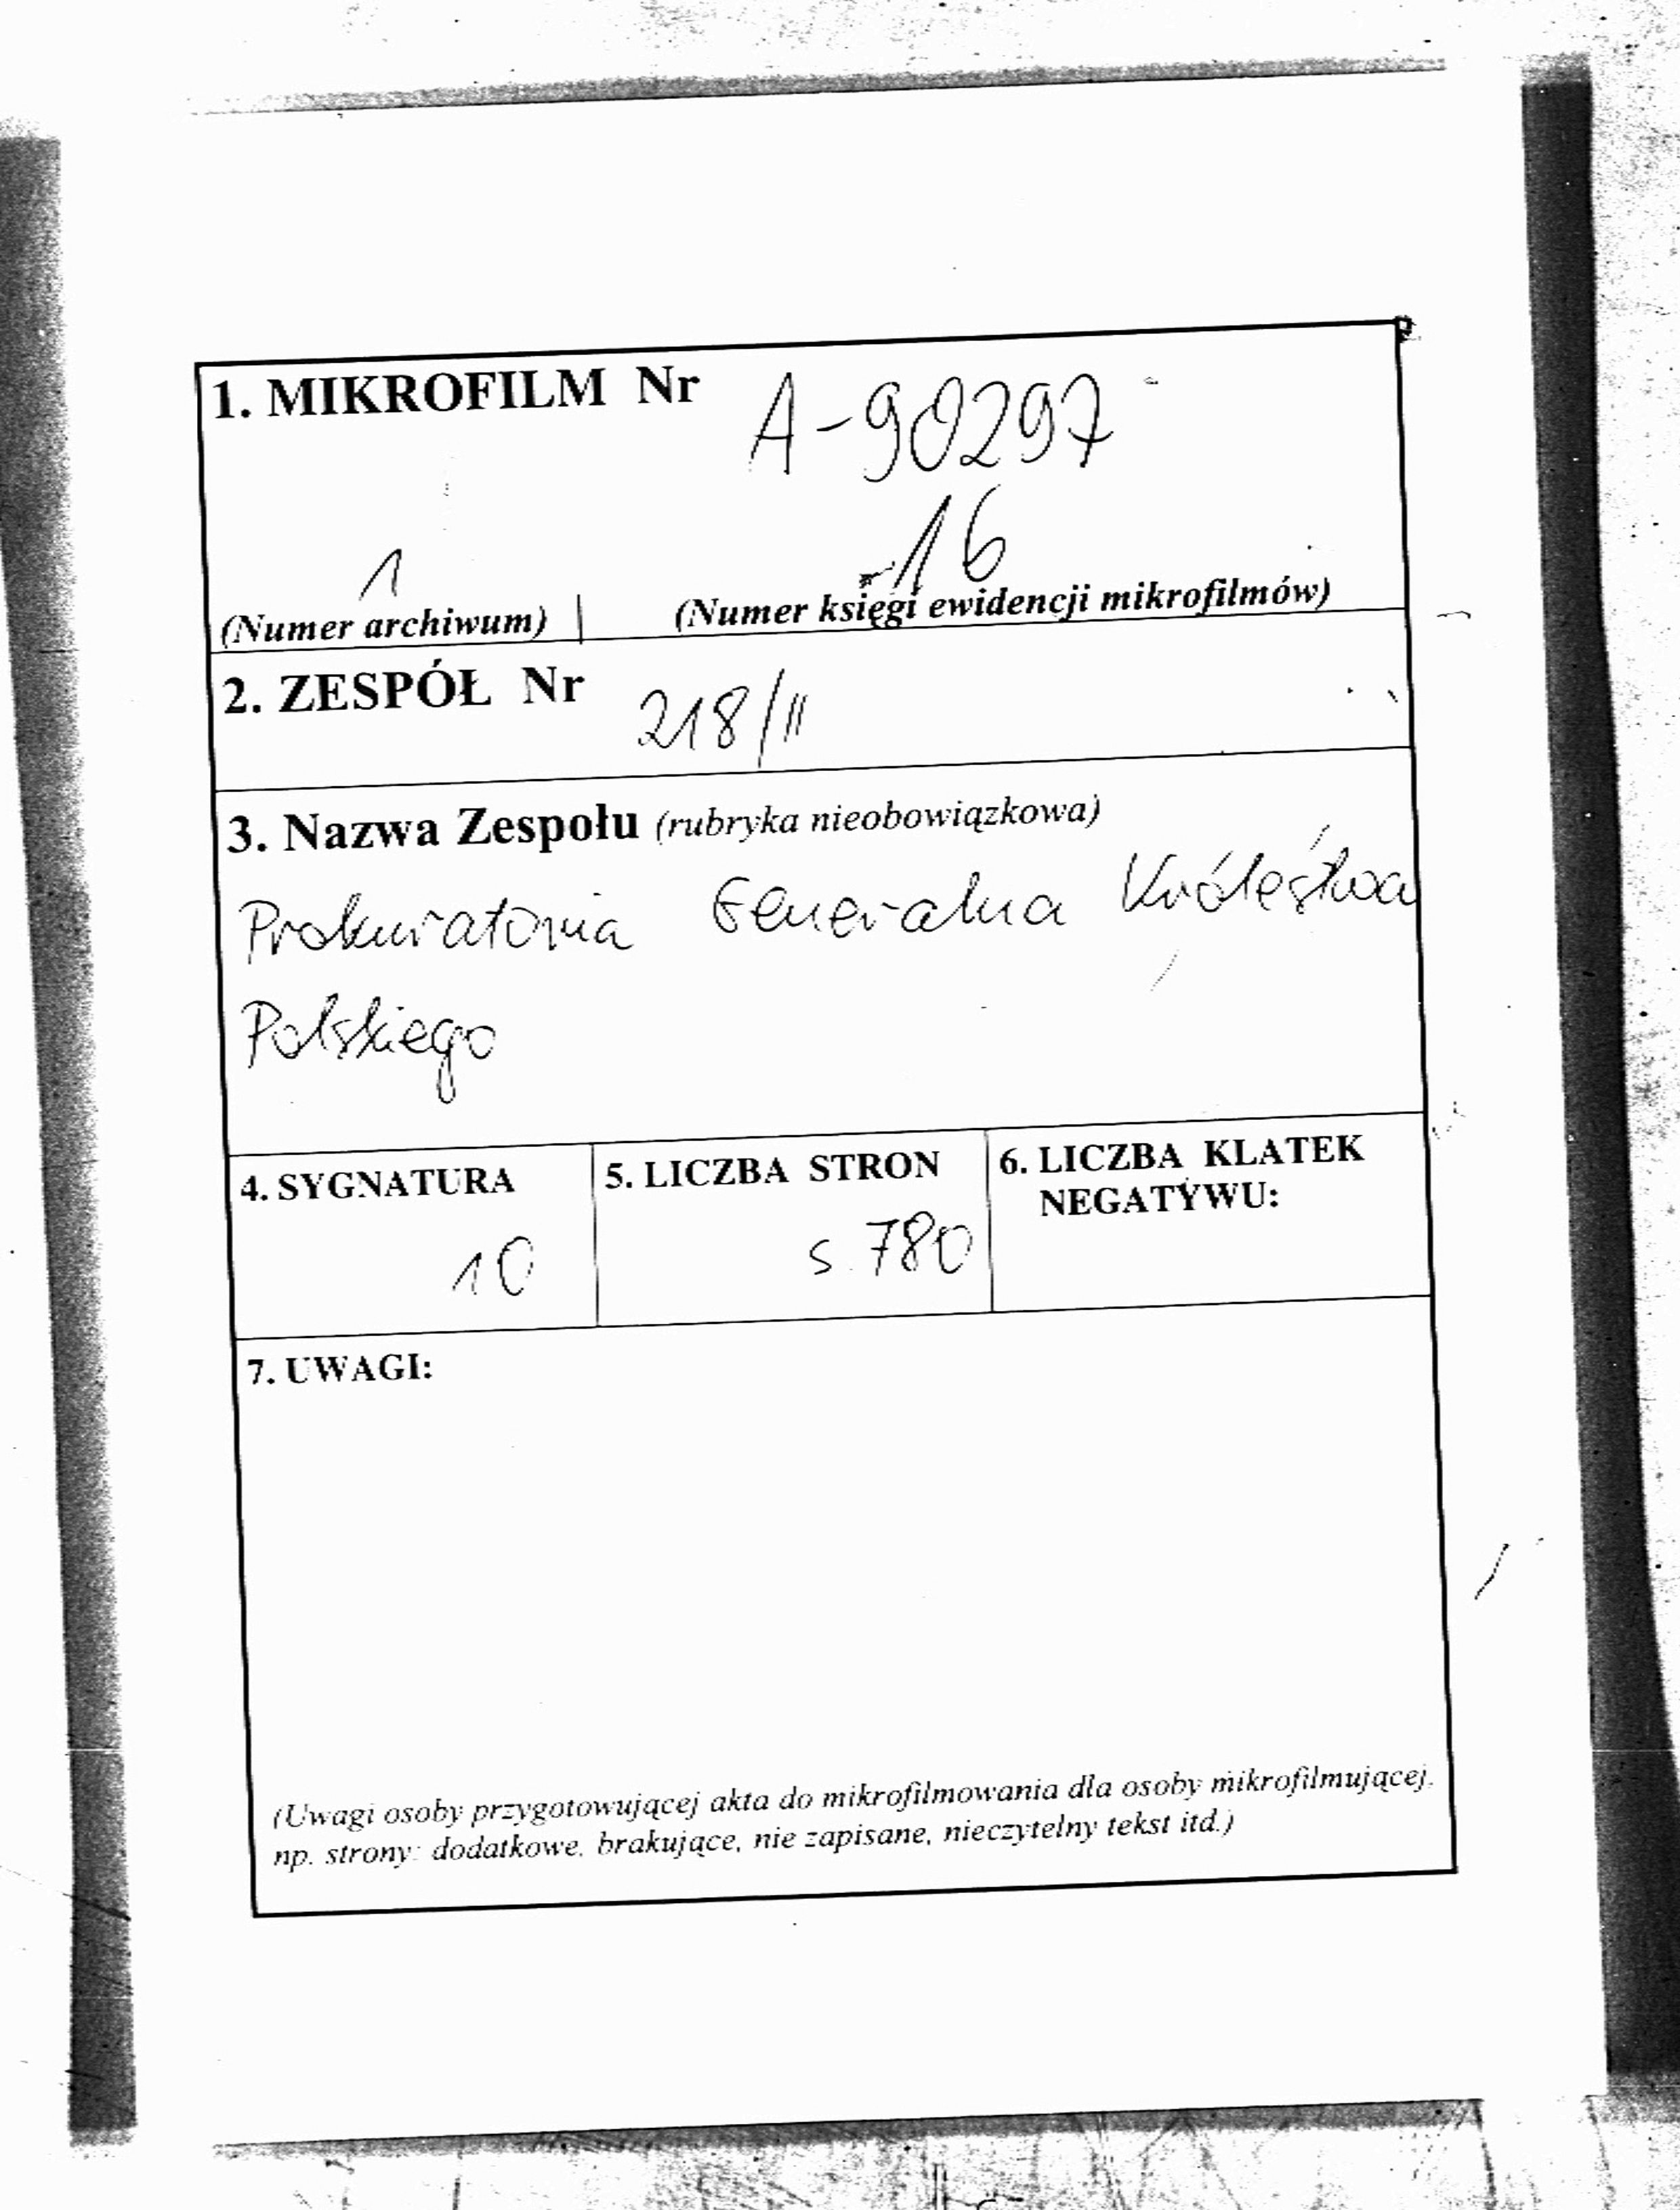 1. MIKROFILM Nr A-90297
1 16
(Numer archiwum) | (Numer księgi ewidencji mikrofilmów)
2. ZESPÓŁ Nr 218/II
3. Nazwa Zespołu (rubryka nieobowiązkowa)
Prokuratoria Generalna Królestwa
Polskiego
4. SYGNATURA
10
5. LICZBA STRON
s. 780
6. LICZBA KLATEK
NEGATYWU:
7. UWAGI:
(Uwagi osoby przygotowującej akta do mikrofilmowania dla osoby mikrofilmującej,
np. strony: dodatkowe, brakujące, nie zapisane, nieczytelny tekst itd.)